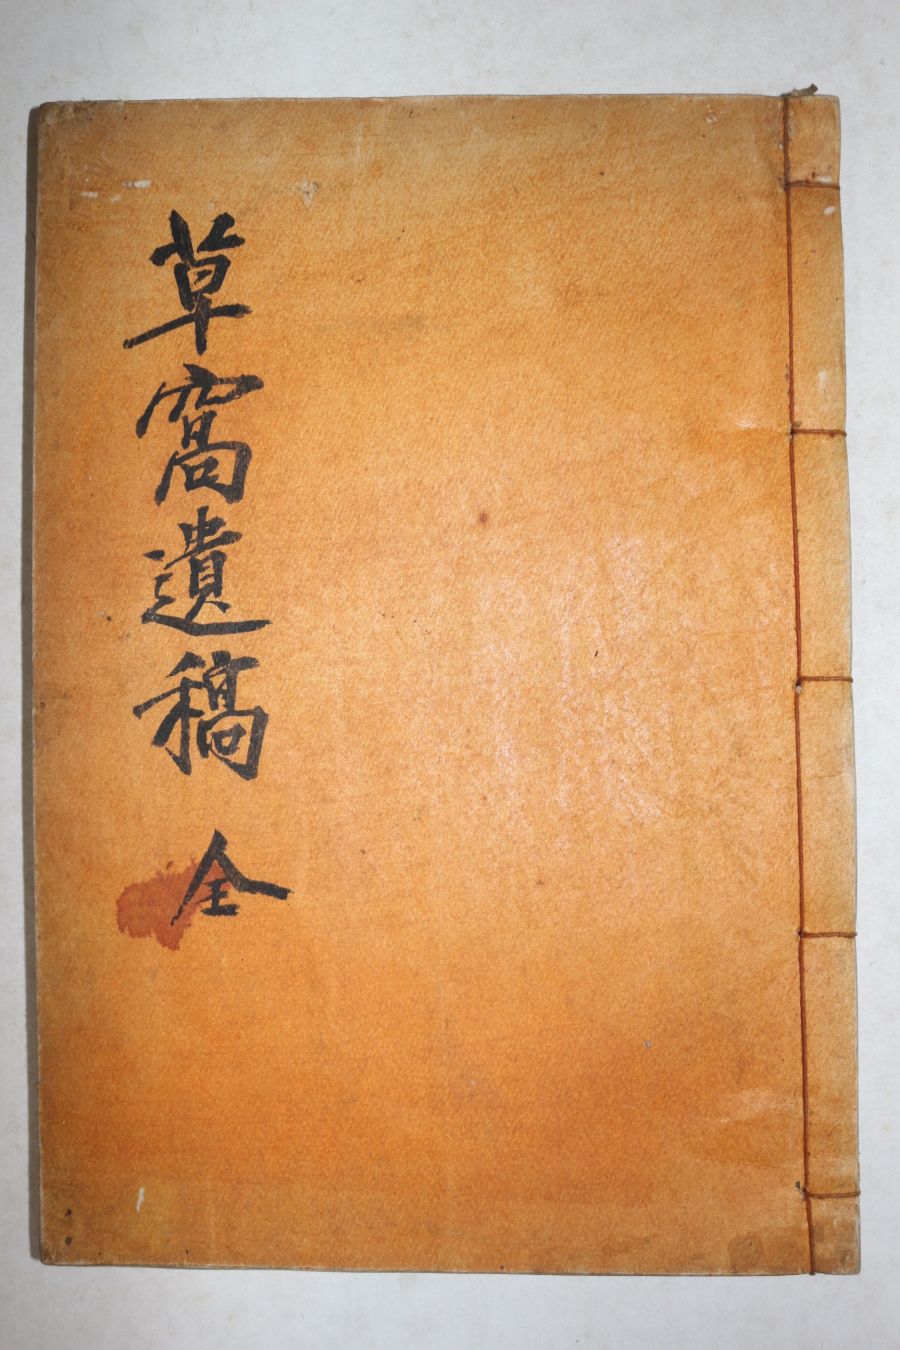 草窩遺稿 全